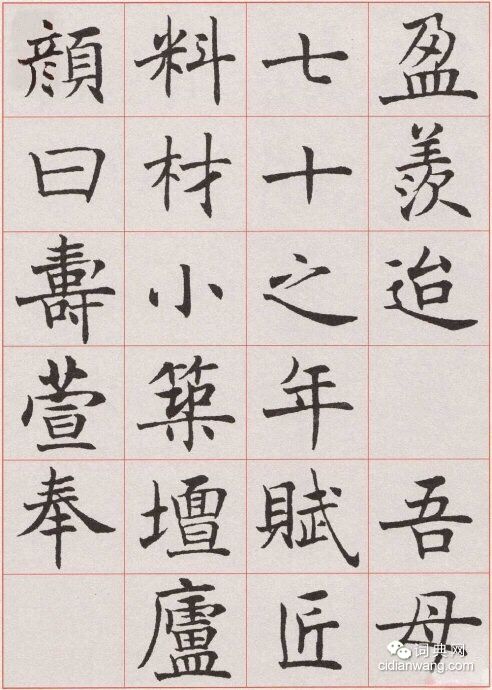 盈羨迨 吾母
七十之年賦匠
料材小築壇廬
顏曰壽萱奉
词典网
cidianwang.com